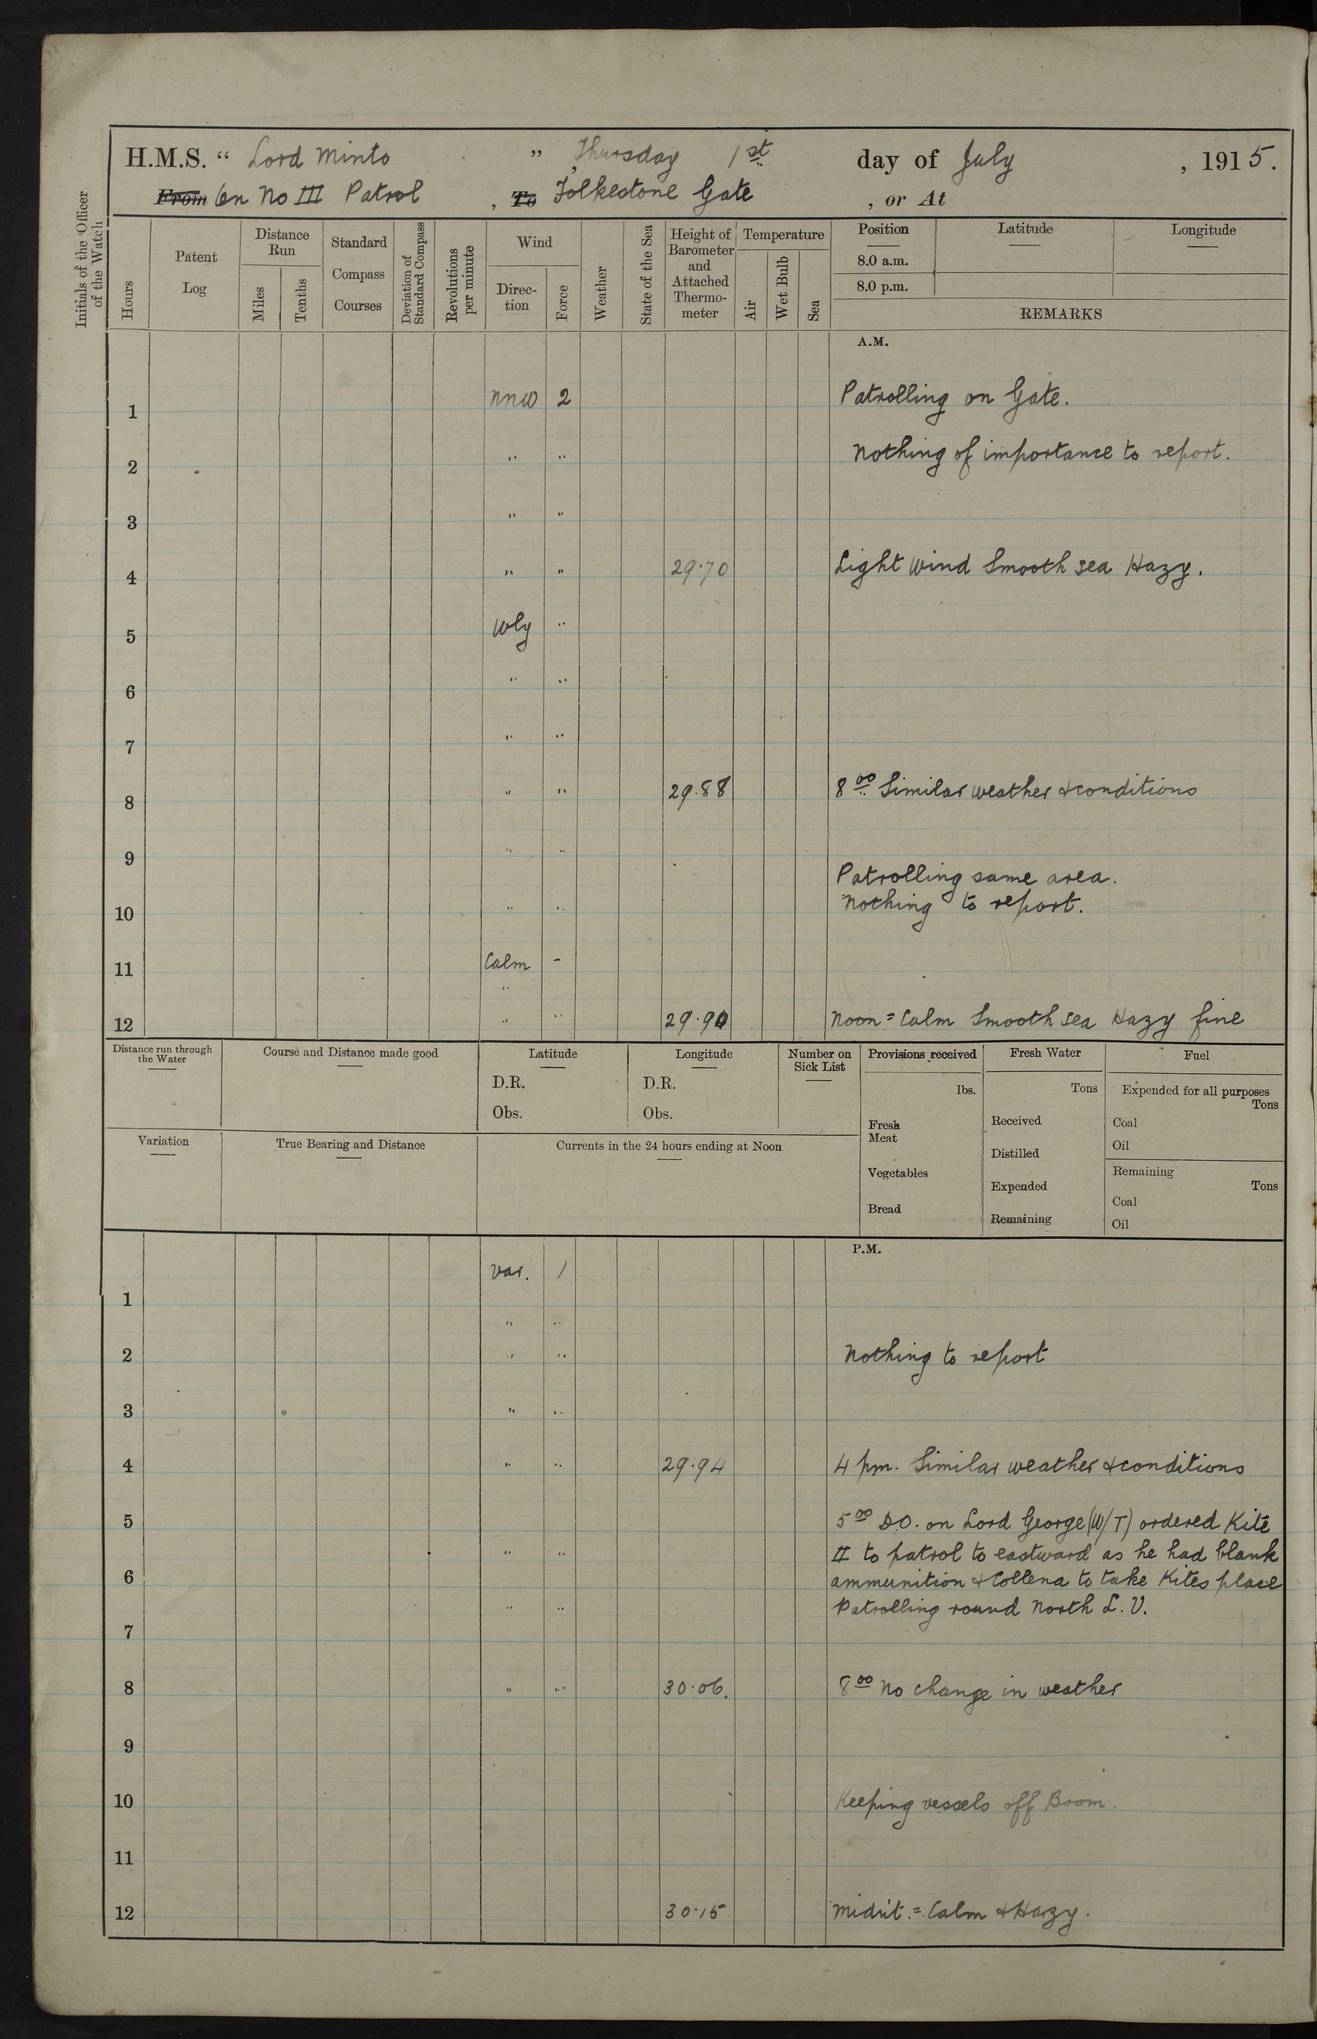 H.M.S. “ Lord Minto ” Thursday 1st day of July , 1915.
From On No III Patrol , To Folkestone Gate , or At
Initials of the Officer of the Watch
Hours
Patent Log
Distance Run
Miles
Tenths
Standard Compass Courses
Deviation of Standard Compass
Revolutions per minute
Wind
Direc-tion
Force
Weather
State of the Sea
Height of Barometer and Attached Thermo-meter
Temperature
Air
Wet Bulb
Sea
Position
8.0 a.m.
8.0 p.m.
Latitude
Longitude
REMARKS
A.M.
1 NNW 2 Patrolling on Gate.
2 " " Nothing of importance to report.
3 " "
4 " " 29.70 Light Wind Smooth sea Hazy.
5 Wly "
6 " "
7 " "
8 " " 29.88 8 00 Similar weather & conditions
9 " "
Patrolling same area.
10 " " Nothing to report.
11 Calm -
"
12 " " 29.90 Noon = Calm Smooth sea Hazy fine
Distance run through the Water
Course and Distance made good
Latitude
D.R.
Obs.
Longitude
D.R.
Obs.
Number on Sick List
Provisions received
lbs.
Fresh Meat
Vegetables
Bread
Fresh Water
Tons
Received
Distilled
Expended
Remaining
Fuel
Expended for all purposes
Tons
Coal
Oil
Remaining
Tons
Coal
Oil
Variation
True Bearing and Distance
Currents in the 24 hours ending at Noon
P.M.
1 Var. 1
" "
2 " " Nothing to report
3 " "
4 " " 29.94 4 pm. Similar weather & conditions
5 5 00 D.O. on Lord George (W/T) ordered Kite
" " II to patrol to eastward as he had blank
6 ammunition & Coltena to take Kites place
" " Patrolling round North L.V.
7
8 " " 30.06. 8 00 No change in weather
9
10 Keeping vessels off Boom.
11
12 30.15 Midn't. = Calm & Hazy.